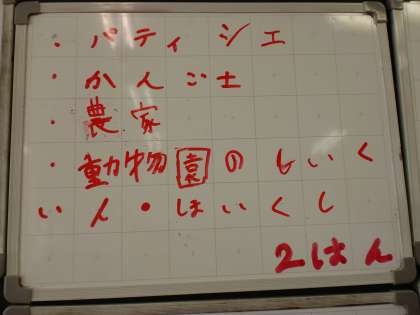 ・パティシエ
・かんご士
・農家
・動物園のしいく
いん・ほいくし
2はん